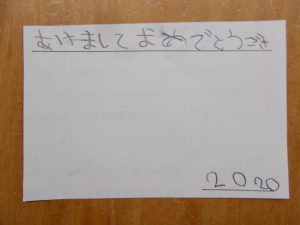 あけまして おめでとうござ
2020